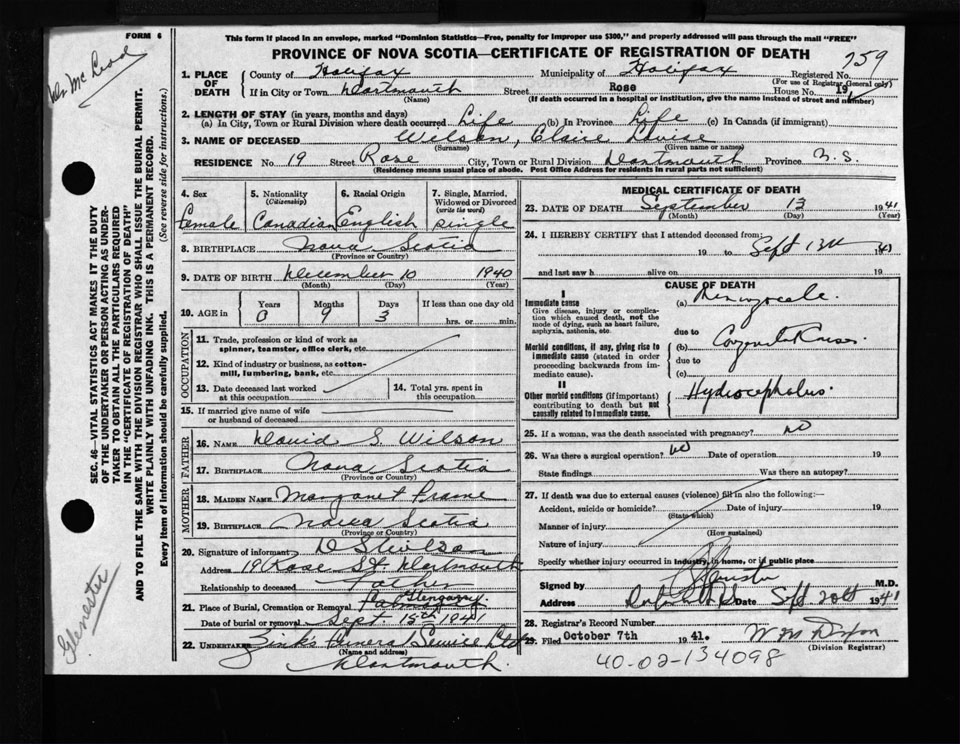 FORM 6
This form if placed in an envelope, marked "Dominion Statistics—Free, penalty for improper use $300," and properly addressed will pass through the mail "FREE"
PROVINCE OF NOVA SCOTIA—CERTIFICATE OF REGISTRATION OF DEATH
Registered No. 759
(For use of Registrar General only)
1. PLACE OF DEATH County of Halifax Municipality of Halifax
If in City or Town Dartmouth Street Rose House No. 19
(Name) (If death occurred in a hospital or institution, give the name instead of street and number)
2. LENGTH OF STAY (in years, months and days)
(a) In City, Town or Rural Division where death occurred Life (b) In Province Life (c) In Canada (if immigrant)
3. NAME OF DECEASED Wilson, Claire Louise
(Surname) (Given name or names)
RESIDENCE No. 19 Street Rose City, Town or Rural Division Dartmouth Province N.S.
(Residence means usual place of abode. Post Office Address for residents in rural parts not sufficient)
4. Sex Female
5. Nationality (Citizenship) Canadian
6. Racial Origin English
7. Single, Married, Widowed or Divorced (write the word) Single
8. BIRTHPLACE Nova Scotia
(Province or Country)
9. DATE OF BIRTH December 10 1940
(Month) (Day) (Year)
10. AGE in Years 0 Months 9 Days 3 If less than one day old hrs. or min.
OCCUPATION
11. Trade, profession or kind of work as spinner, teamster, office clerk, etc.
12. Kind of industry or business, as cotton-mill, lumbering, bank, etc.
13. Date deceased last worked at this occupation
14. Total yrs. spent in this occupation
15. If married give name of wife or husband of deceased
FATHER
16. NAME David S. Wilson
17. BIRTHPLACE Nova Scotia
(Province or Country)
MOTHER
18. MAIDEN NAME Margaret Frame
19. BIRTHPLACE Nova Scotia
(Province or Country)
20. Signature of informant D S Wilson
Address 19 Rose St Dartmouth
Relationship to deceased Father
21. Place of Burial, Cremation or Removal Glengarry
Date of burial or removal Sept. 15th 1941
22. UNDERTAKER Zink's Funeral Service Ltd
(Name and address)
Dartmouth.
MEDICAL CERTIFICATE OF DEATH
23. DATE OF DEATH September 13 1941
(Month) (Day) (Year)
24. I HEREBY CERTIFY that I attended deceased from:
19 to Sept 13th 1941
and last saw h alive on 19
CAUSE OF DEATH
I
Immediate cause (a)
Give disease, injury or complication which caused death, not the mode of dying, such as heart failure, asphyxia, asthenia, etc.
due to
Morbid conditions, if any, giving rise to immediate cause (stated in order proceeding backwards from immediate cause). (b)
due to
(c)
II
Other morbid conditions (if important) contributing to death but not causally related to immediate cause. Hydrocephalus
25. If a woman, was the death associated with pregnancy? no
26. Was there a surgical operation? no Date of operation 19
State findings Was there an autopsy?
27. If death was due to external causes (violence) fill in also the following:—
Accident, suicide or homicide? Date of injury 19
(State which)
Manner of injury
(How sustained)
Nature of injury
Specify whether injury occurred in industry, in home, or in public place
Signed by M.D.
Address Sept 20th 1941
28. Registrar's Record Number
29. Filed October 7th 1941. W M Dixon
(Division Registrar)
40-02-134098
SEC. 46—VITAL STATISTICS ACT MAKES IT THE DUTY OF THE UNDERTAKER OR PERSON ACTING AS UNDERTAKER TO OBTAIN ALL THE PARTICULARS REQUIRED IN THE "CERTIFICATE OF REGISTRATION OF DEATH"
AND TO FILE THE SAME WITH THE DIVISION REGISTRAR WHO SHALL ISSUE THE BURIAL PERMIT.
WRITE PLAINLY WITH UNFADING INK. THIS IS A PERMANENT RECORD.
Every item of information should be carefully supplied. (See reverse side for instructions.)
McLeod
Glenester